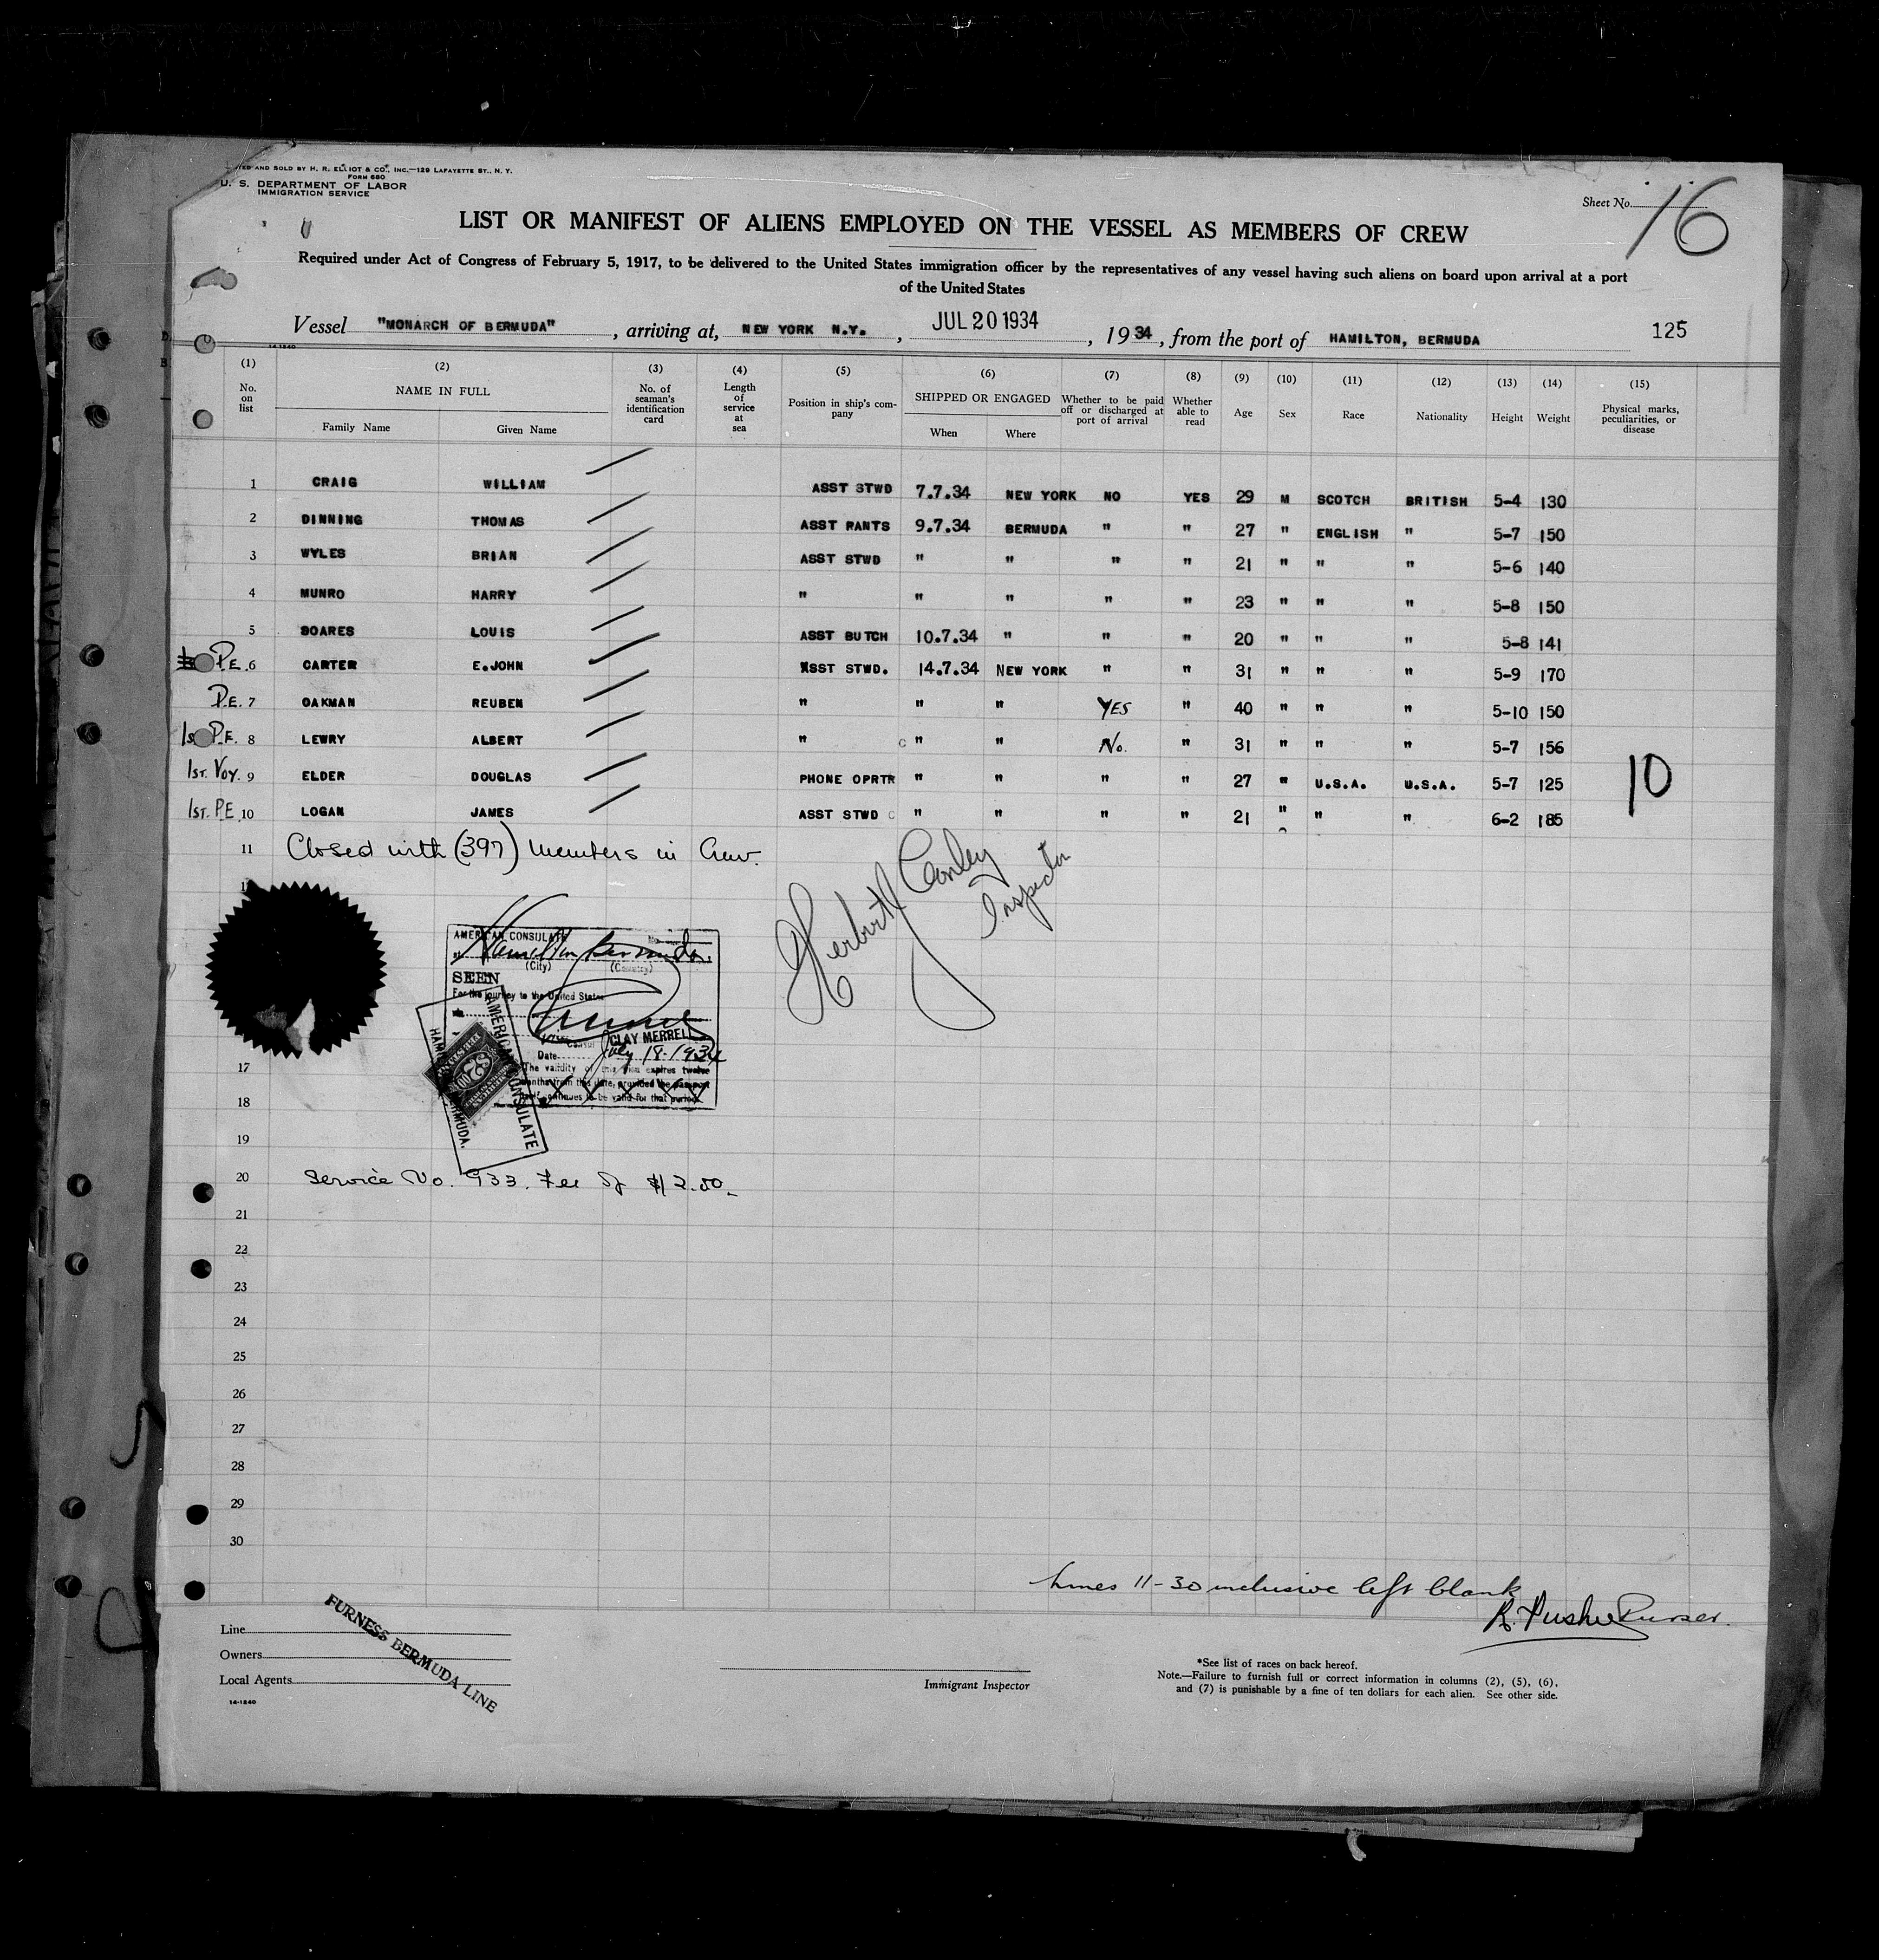 PRINTED AND SOLD BY H. R. ELLIOT & CO., INC.—129 LAFAYETTE ST., N. Y.
FORM 680
U. S. DEPARTMENT OF LABOR
IMMIGRATION SERVICE
Sheet No. 16
LIST OR MANIFEST OF ALIENS EMPLOYED ON THE VESSEL AS MEMBERS OF CREW
Required under Act of Congress of February 5, 1917, to be delivered to the United States immigration officer by the representatives of any vessel having such aliens on board upon arrival at a port
of the United States
Vessel "MONARCH OF BERMUDA", arriving at, NEW YORK N.Y., JUL 20 1934, 1934, from the port of HAMILTON, BERMUDA 125
14-1240
(1) (2) (3) (4) (5) (6) (7) (8) (9) (10) (11) (12) (13) (14) (15)
No. on list NAME IN FULL Family Name Given Name No. of seaman's identification card Length of service at sea Position in ship's company SHIPPED OR ENGAGED When Where Whether to be paid off or discharged at port of arrival Whether able to read Age Sex Race Nationality Height Weight Physical marks, peculiarities, or disease
1 CRAIG WILLIAM ASST STWD 7.7.34 NEW YORK NO YES 29 M SCOTCH BRITISH 5-4 130
2 DINNING THOMAS ASST PANTS 9.7.34 BERMUDA " " 27 " ENGLISH " 5-7 150
3 WYLES BRIAN ASST STWD " " " " 21 " " " 5-6 140
4 MUNRO HARRY " " " " " 23 " " " 5-8 150
5 SOARES LOUIS ASST BUTCH 10.7.34 " " " 20 " " " 5-8 141
P.E. 6 CARTER E.JOHN ASST STWD. 14.7.34 NEW YORK " " 31 " " " 5-9 170
P.E. 7 OAKMAN REUBEN " " " YES " 40 " " " 5-10 150
1st P.E. 8 LEWRY ALBERT " C " " No. " 31 " " " 5-7 156
1ST. VOY. 9 ELDER DOUGLAS PHONE OPRTR " " " " 27 " U.S.A. U.S.A. 5-7 125
10
1ST. P.E. 10 LOGAN JAMES ASST STWD C " " " " 21 " " " 6-2 185
11 Closed with (397) members in Crew.
Herbert Conley
Inspector
AMERICAN CONSULATE No.
at Hamilton Bermuda.
(City) (Country)
SEEN
For the journey to the United States
CLAY MERRELL
Consul
Date July 18-1934
The validity of this visa expires twelve
months from this date, provided the passport
continues to be valid for that period.
AMERICAN CONSULATE
HAMILTON, BERMUDA.
17
18
19
20 Service No. 933. Fee of $2.50.
21
22
23
24
25
26
27
28
29
30
Lines 11-30 inclusive left blank
Purser.
Line
Owners
Local Agents
14-1240
FURNESS BERMUDA LINE
Immigrant Inspector
*See list of races on back hereof.
Note.—Failure to furnish full or correct information in columns (2), (5), (6),
and (7) is punishable by a fine of ten dollars for each alien. See other side.